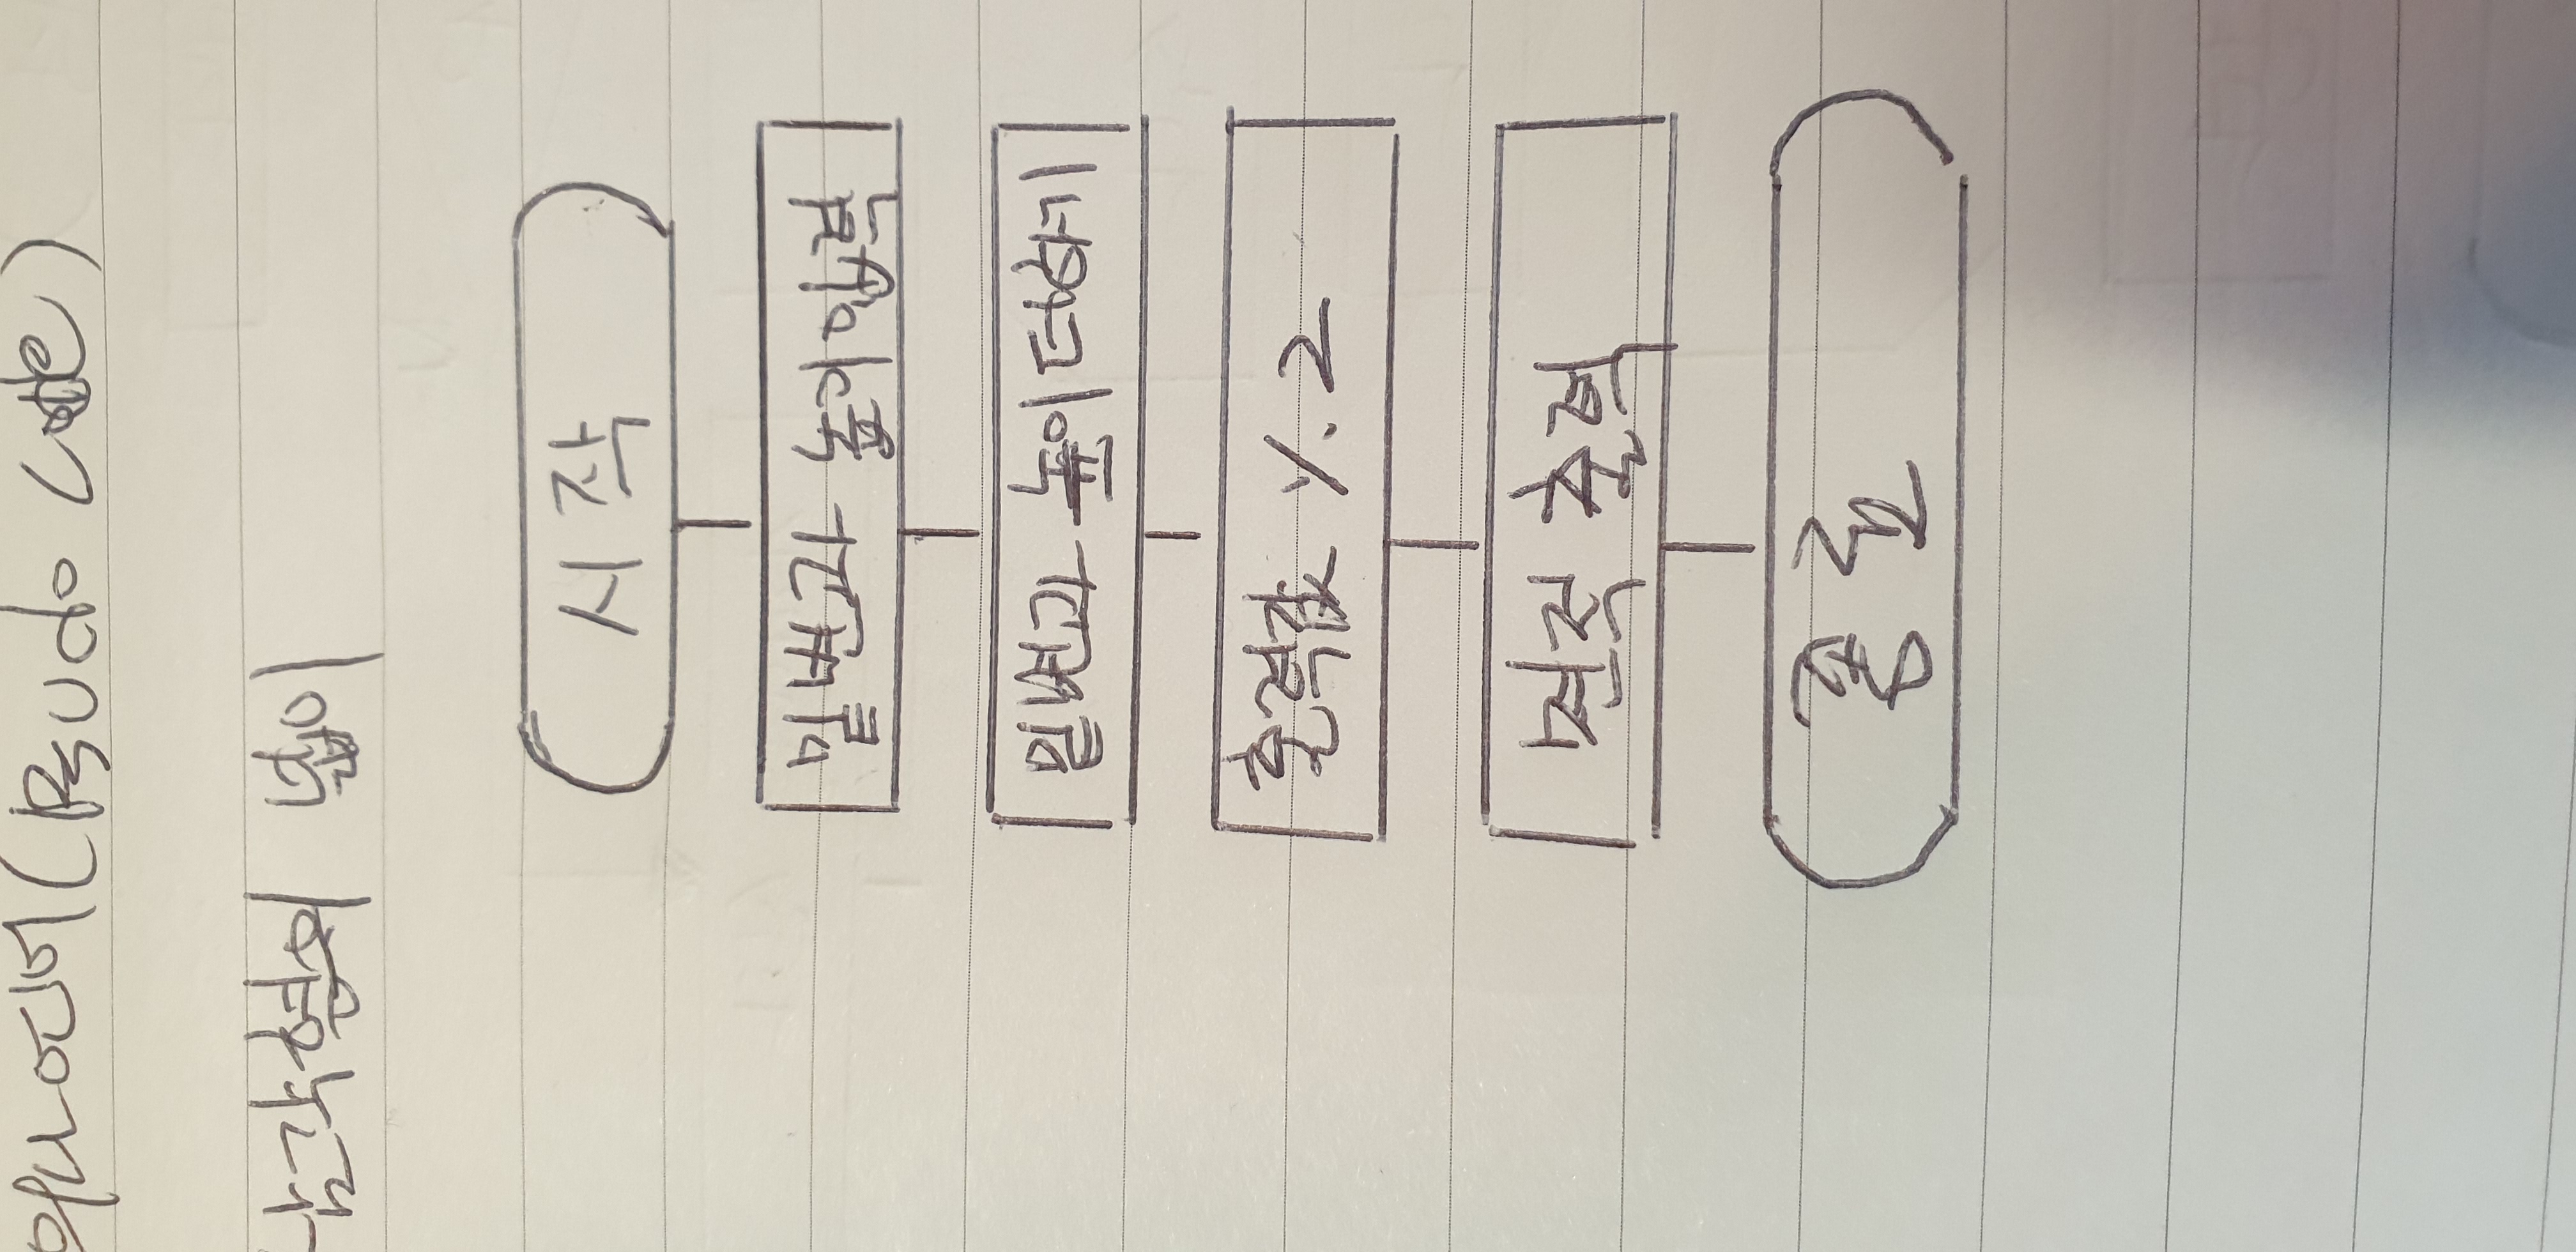 의사언어(Psudo Code)
삼각형의 넓이
시작
밑변과 높이입력
밑변과 높이더하기
출력값 % 2
면적 출력
종료